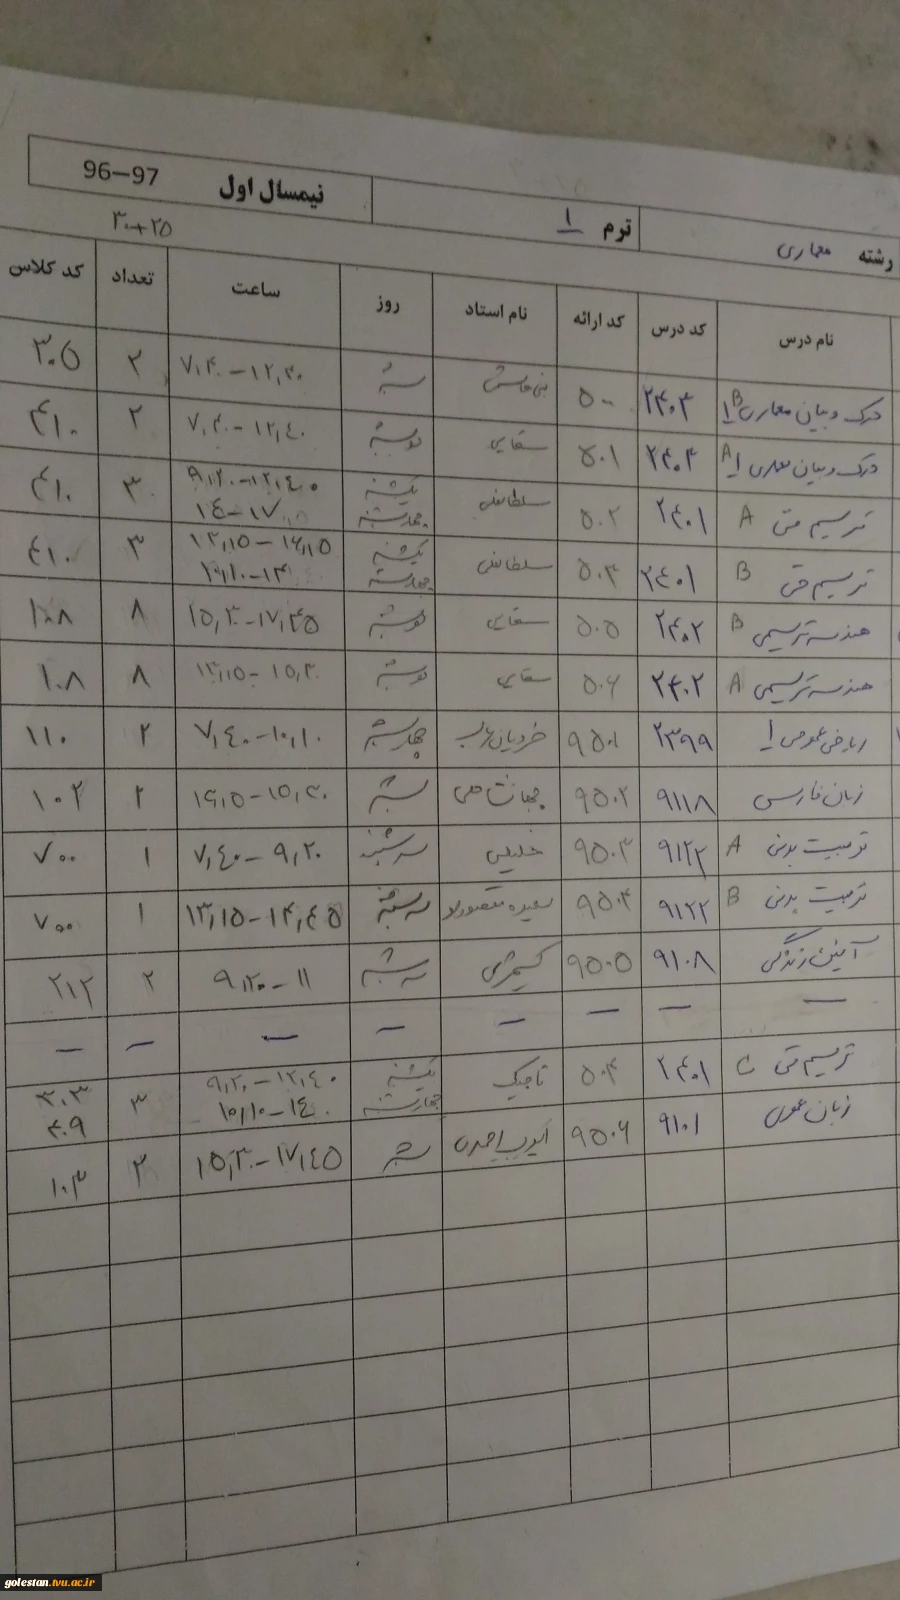 رشته معماری ترم ۱ نیمسال اول 96–97
۳۰+۲۵
نام درس کد درس کد ارائه نام استاد روز ساعت تعداد کد کلاس
درک و بیان معماری ۱ B ۲۴۰۳ ۵۰۰ شنبه ۷,۴۰–۱۲,۴۰ ۲ ۳۰۵
درک و بیان معماری ۱ A ۲۴۰۳ ۵۰۱ سقایی دوشنبه ۷,۴۰–۱۲,۴۰ ۲ ۴۱۰
ترسیم فنی A ۲۴۰۱ ۵۰۲ سلطانی یکشنبه چهارشنبه ۹,۲۰–۱۲,۴۰ ۱۴–۱۷ ۳ ۴۱۰
ترسیم فنی B ۲۴۰۱ ۵۰۳ سلطانی یکشنبه چهارشنبه ۱۰,۱۰–۱۴ ۳ ۴۱۰
هندسه ترسیمی B ۲۴۰۲ ۵۰۵ سقایی دوشنبه ۱۵,۳۰–۱۷,۴۵ ۸ ۱۰۸
هندسه ترسیمی A ۲۴۰۲ ۵۰۶ سقایی دوشنبه ۱۳,۱۵–۱۵,۳۰ ۸ ۱۰۸
ریاضی عمومی ۱ ۲۳۹۹ ۹۵۰۱ چهارشنبه ۷,۴۰–۱۰,۱۰ ۲ ۱۱۰
زبان فارسی ۹۱۱۸ ۹۵۰۲ شنبه ۲ ۱۰۲
تربیت بدنی A ۹۱۲۲ ۹۵۰۳ خلیلی سه شنبه ۷,۴۰–۹,۲۰ ۱ ۷۰۰
تربیت بدنی B ۹۱۲۲ ۹۵۰۴ سعیده سه شنبه ۱۳,۱۵–۱۴,۴۵ ۱ ۷۰۰
آئین زندگی ۹۱۰۸ ۹۵۰۵ سه شنبه ۹,۲۰–۱۱ ۲ ۲۱۲
– – – – – – – –
ترسیم فنی C ۲۴۰۱ ۵۰۴ تاجیک یکشنبه چهارشنبه ۹,۲۰–۱۲,۴۰ ۱۰,۱۰–۱۴ ۳ ۳۰۳ ۴۰۹
زبان عمومی ۹۱۰۱ ۹۵۰۶ ایوب احمدی شنبه ۱۵,۳۰–۱۷,۴۵ ۳ ۱۰۳
golestan.tvu.ac.ir